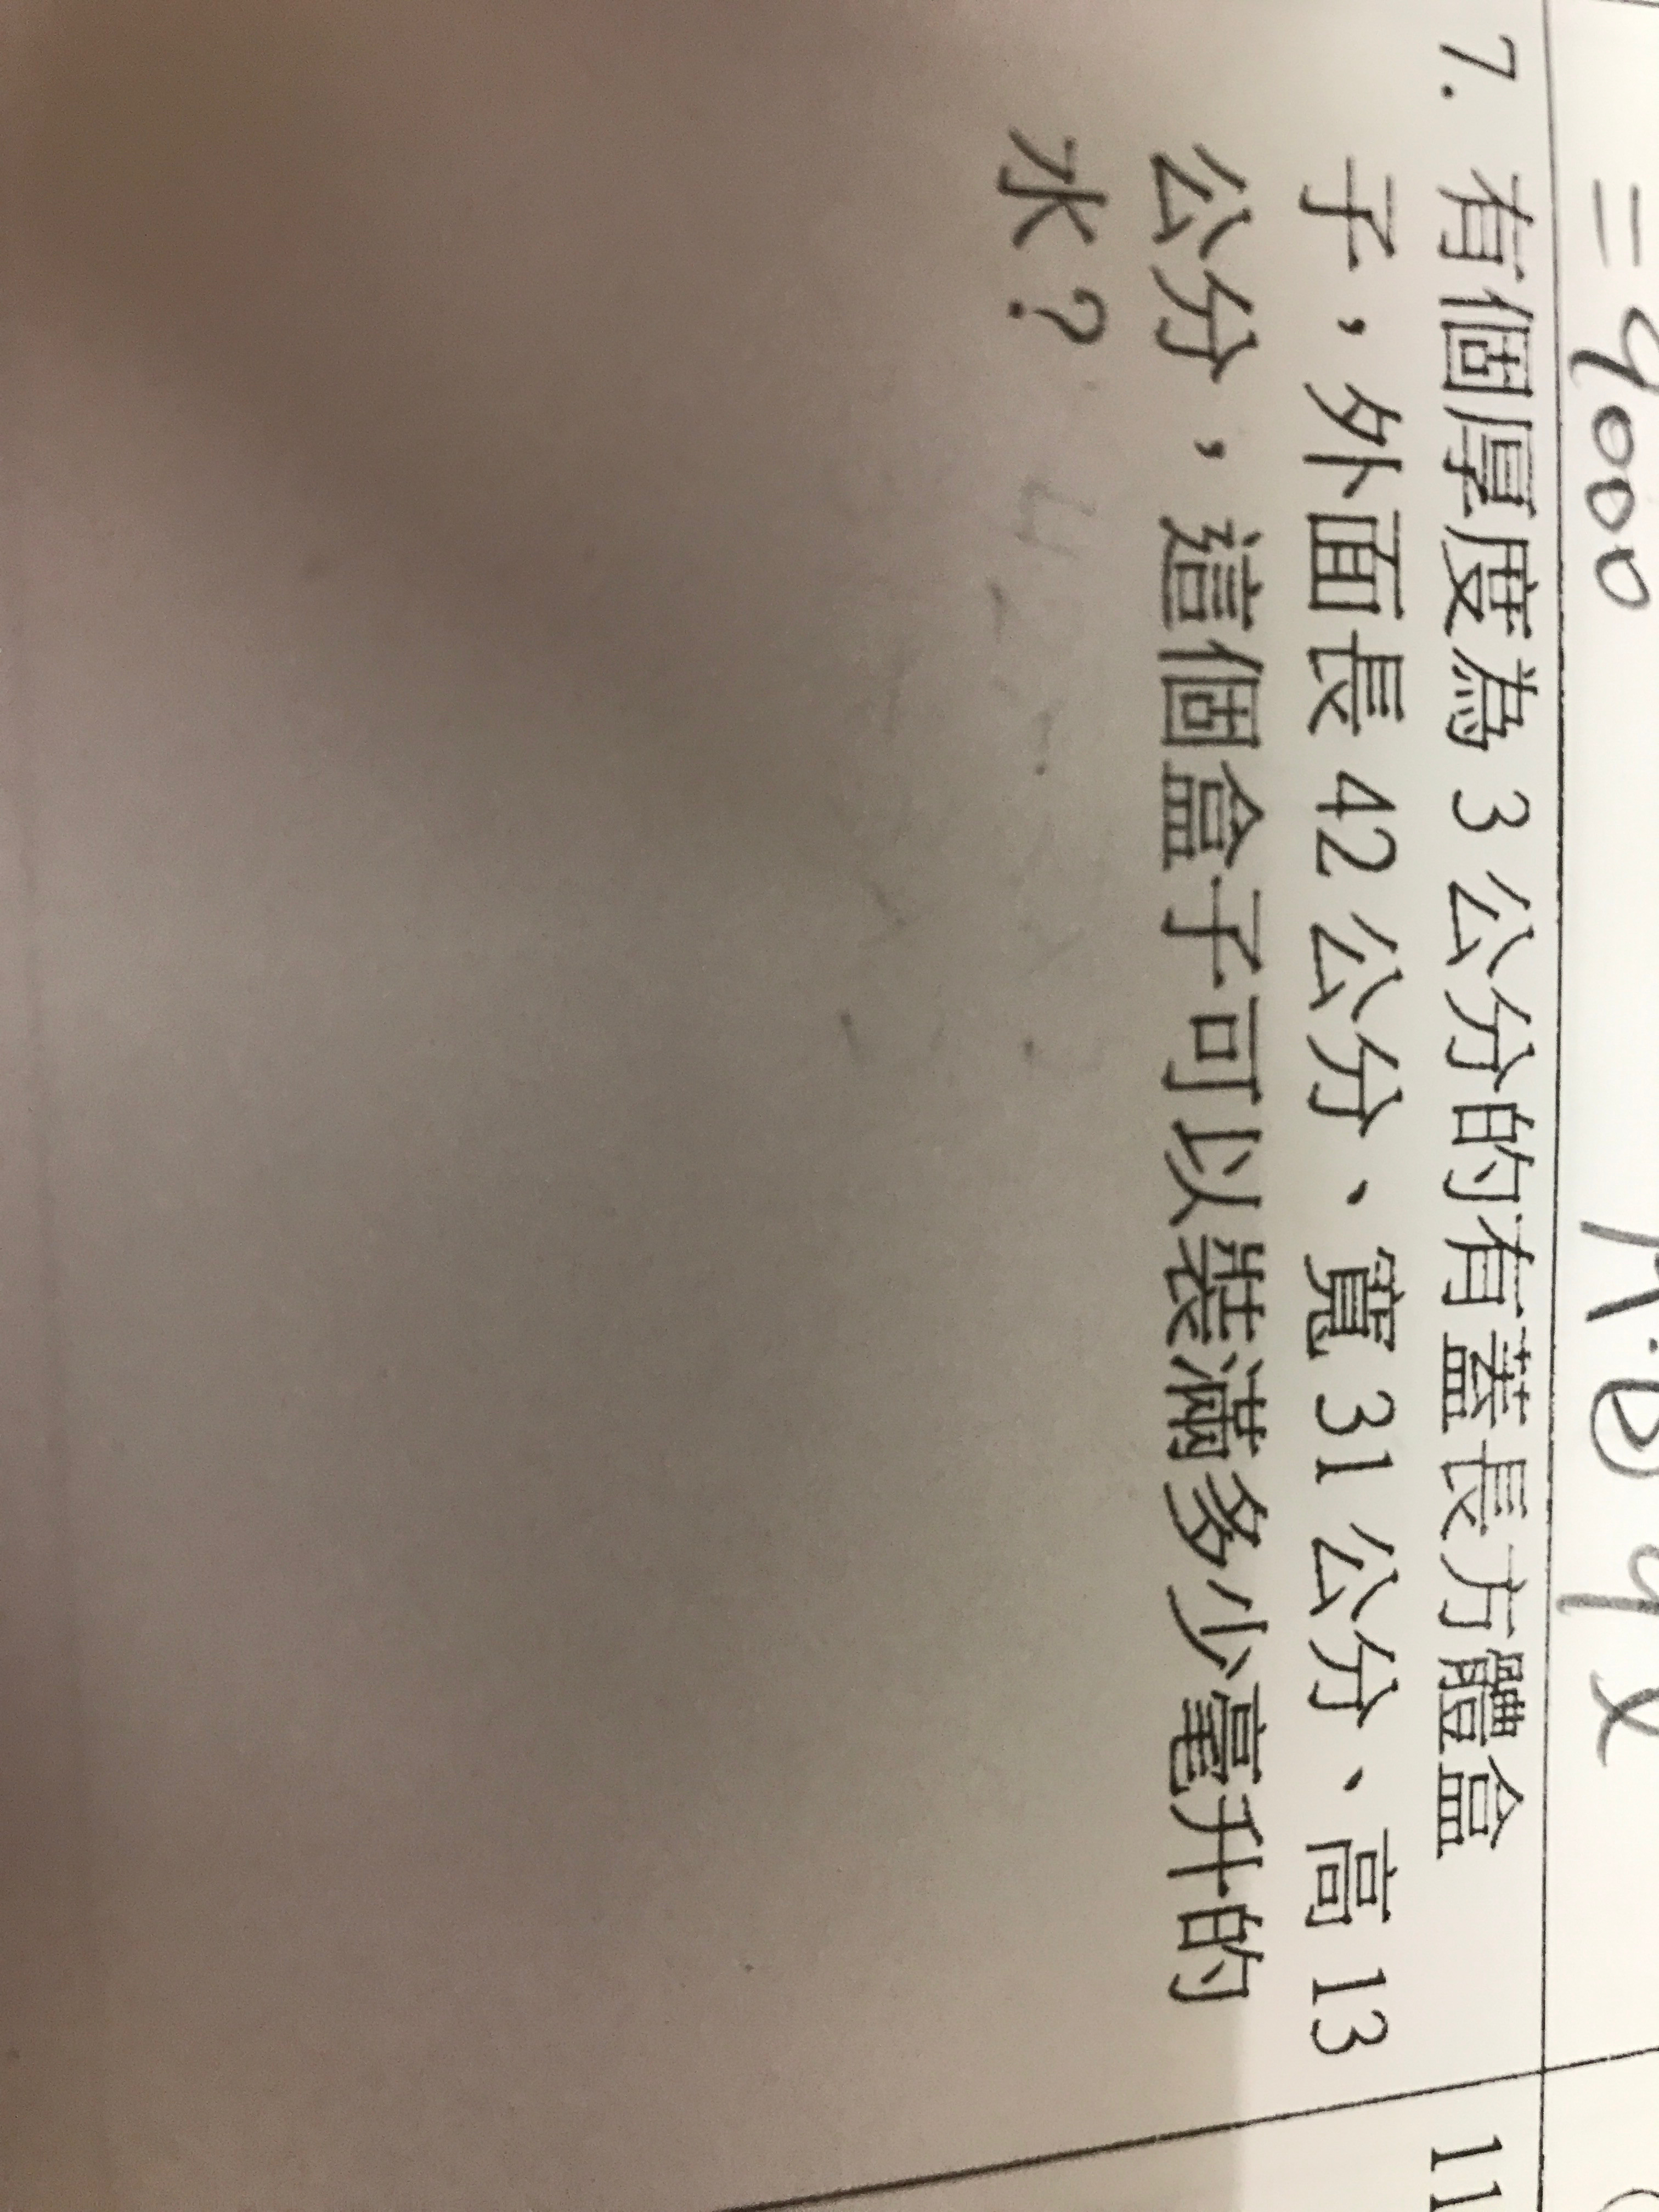 = 9000
7. 有個厚度為 3 公分的有蓋長方體盒
子，外面長 42 公分、寬 31 公分、高 13
公分，這個盒子可以裝滿多少毫升的
水？
11